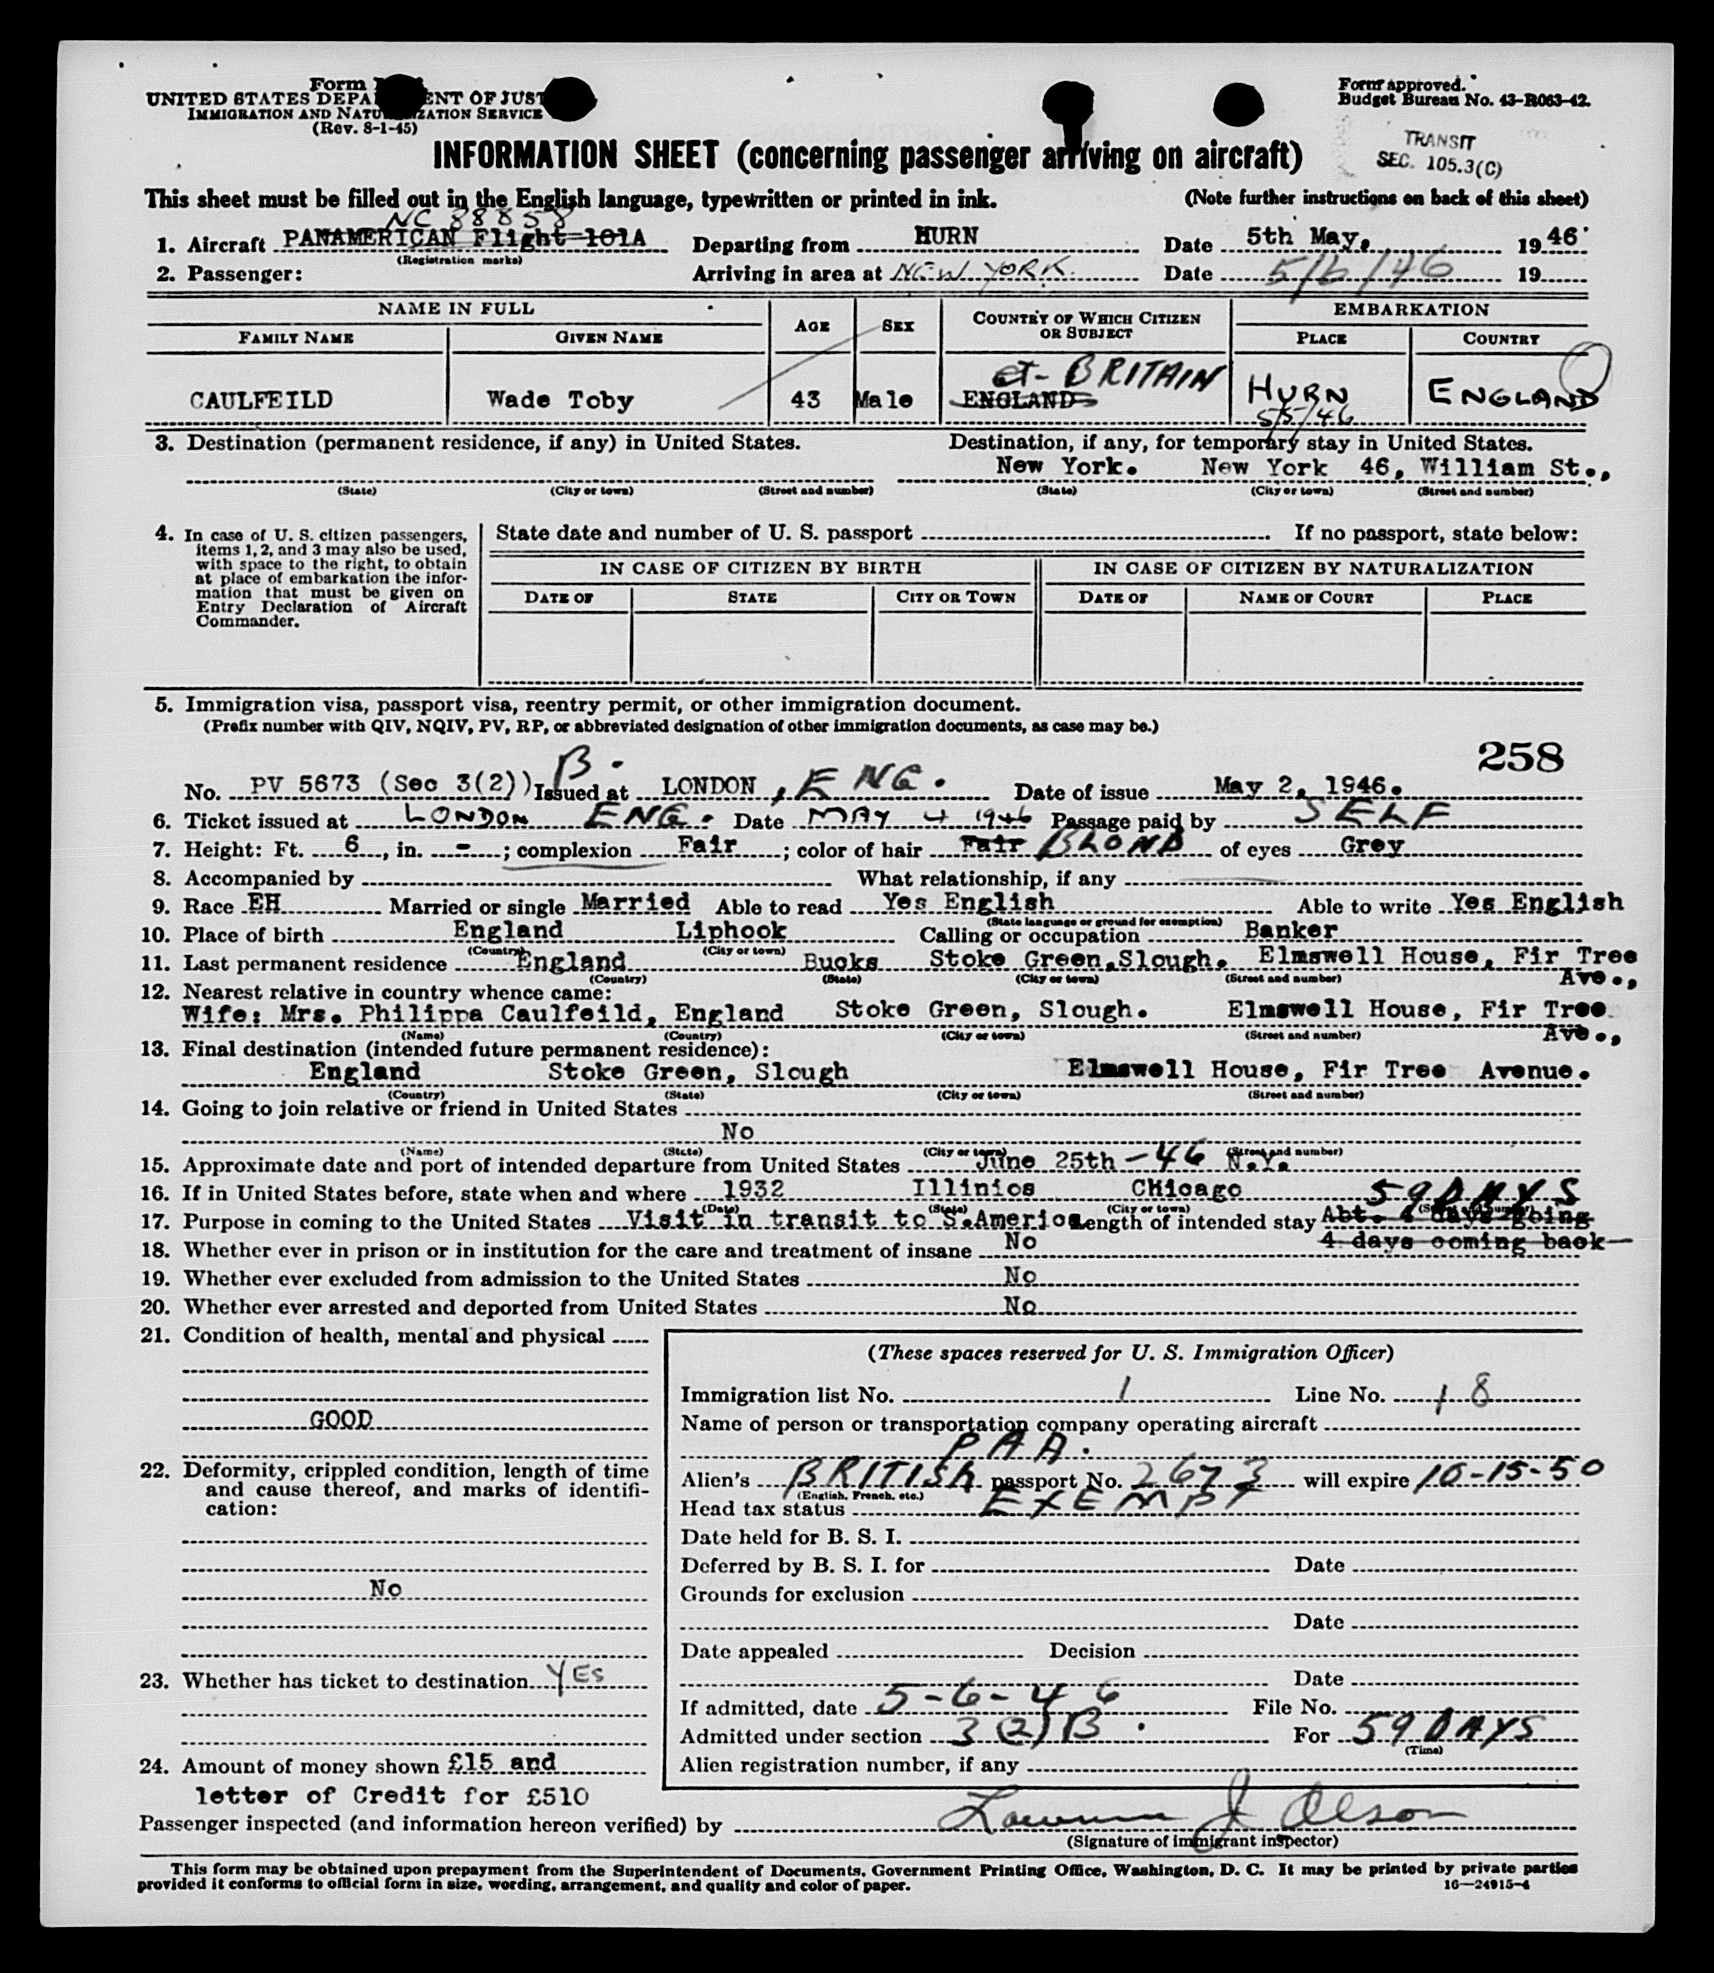 Form
UNITED STATES DEPARTMENT OF JUSTICE
IMMIGRATION AND NATURALIZATION SERVICE
(Rev. 8-1-45)
Form approved.
Budget Bureau No. 43-R063-42.
TRANSIT
SEC. 105.3(C)
INFORMATION SHEET (concerning passenger arriving on aircraft)
This sheet must be filled out in the English language, typewritten or printed in ink. (Note further instructions on back of this sheet)
NC 88858
1. Aircraft PANAMERICAN Flight 101A Departing from HURN Date 5th May, 1946
(Registration marks)
2. Passenger: Arriving in area at NEW YORK. Date 5/6/46 19
NAME IN FULL AGE SEX COUNTRY OF WHICH CITIZEN OR SUBJECT EMBARKATION
FAMILY NAME GIVEN NAME PLACE COUNTRY
Gt. BRITAIN
CAULFEILD Wade Toby 43 Male ENGLAND HURN ENGLAND
5/5/46
3. Destination (permanent residence, if any) in United States. Destination, if any, for temporary stay in United States.
New York. New York 46, William St.,
(State) (City or town) (Street and number) (State) (City or town) (Street and number)
4. In case of U. S. citizen passengers, items 1, 2, and 3 may also be used, with space to the right, to obtain at place of embarkation the information that must be given on Entry Declaration of Aircraft Commander.
State date and number of U. S. passport If no passport, state below:
IN CASE OF CITIZEN BY BIRTH IN CASE OF CITIZEN BY NATURALIZATION
DATE OF STATE CITY OR TOWN DATE OF NAME OF COURT PLACE
5. Immigration visa, passport visa, reentry permit, or other immigration document.
(Prefix number with QIV, NQIV, PV, RP, or abbreviated designation of other immigration documents, as case may be.)
258
No. PV 5673 (Sec 3(2)) B. Issued at LONDON, ENG. Date of issue May 2, 1946.
6. Ticket issued at LONDON ENG. Date MAY 4 1946 Passage paid by SELF
7. Height: Ft. 6, in. -; complexion Fair; color of hair Fair BLOND of eyes Grey
8. Accompanied by What relationship, if any
9. Race EH Married or single Married Able to read Yes English Able to write Yes English
(State language or ground for exemption)
10. Place of birth England Liphook Calling or occupation Banker
(Country) (City or town)
11. Last permanent residence England Bucks Stoke Green, Slough. Elmswell House, Fir Tree Ave.,
(Country) (State) (City or town) (Street and number)
12. Nearest relative in country whence came:
Wife: Mrs. Philippa Caulfeild, England Stoke Green, Slough. Elmswell House, Fir Tree Ave.,
(Name) (Country) (City or town) (Street and number)
13. Final destination (intended future permanent residence):
England Stoke Green, Slough Elmswell House, Fir Tree Avenue.
(Country) (State) (City or town) (Street and number)
14. Going to join relative or friend in United States
No
(Name) (State) (City or town) (Street and number)
15. Approximate date and port of intended departure from United States June 25th -46 N.Y.
16. If in United States before, state when and where 1932 Illinios CHicago
(Date) (State) (City or town) (Street and number)
59 DAYS
17. Purpose in coming to the United States Visit in transit to S.America Length of intended stay Abt. 4 days going
4 days coming back
18. Whether ever in prison or in institution for the care and treatment of insane No
19. Whether ever excluded from admission to the United States No
20. Whether ever arrested and deported from United States No
21. Condition of health, mental and physical
GOOD
22. Deformity, crippled condition, length of time and cause thereof, and marks of identification:
No
23. Whether has ticket to destination YES
24. Amount of money shown £15 and
letter of Credit for £510
(These spaces reserved for U. S. Immigration Officer)
Immigration list No. 1 Line No. 18
Name of person or transportation company operating aircraft
PAA.
Alien's BRITISH passport No. 2673 will expire 10-15-50
(English, French, etc.)
Head tax status EXEMPT
Date held for B. S. I.
Deferred by B. S. I. for Date
Grounds for exclusion
Date
Date appealed Decision
Date
If admitted, date 5-6-46 File No.
Admitted under section 3(2)B. For 59 DAYS
(Time)
Alien registration number, if any
Passenger inspected (and information hereon verified) by Lawrence J Olson
(Signature of immigrant inspector)
This form may be obtained upon prepayment from the Superintendent of Documents, Government Printing Office, Washington, D. C. It may be printed by private parties
provided it conforms to official form in size, wording, arrangement, and quality and color of paper. 16—24915-4